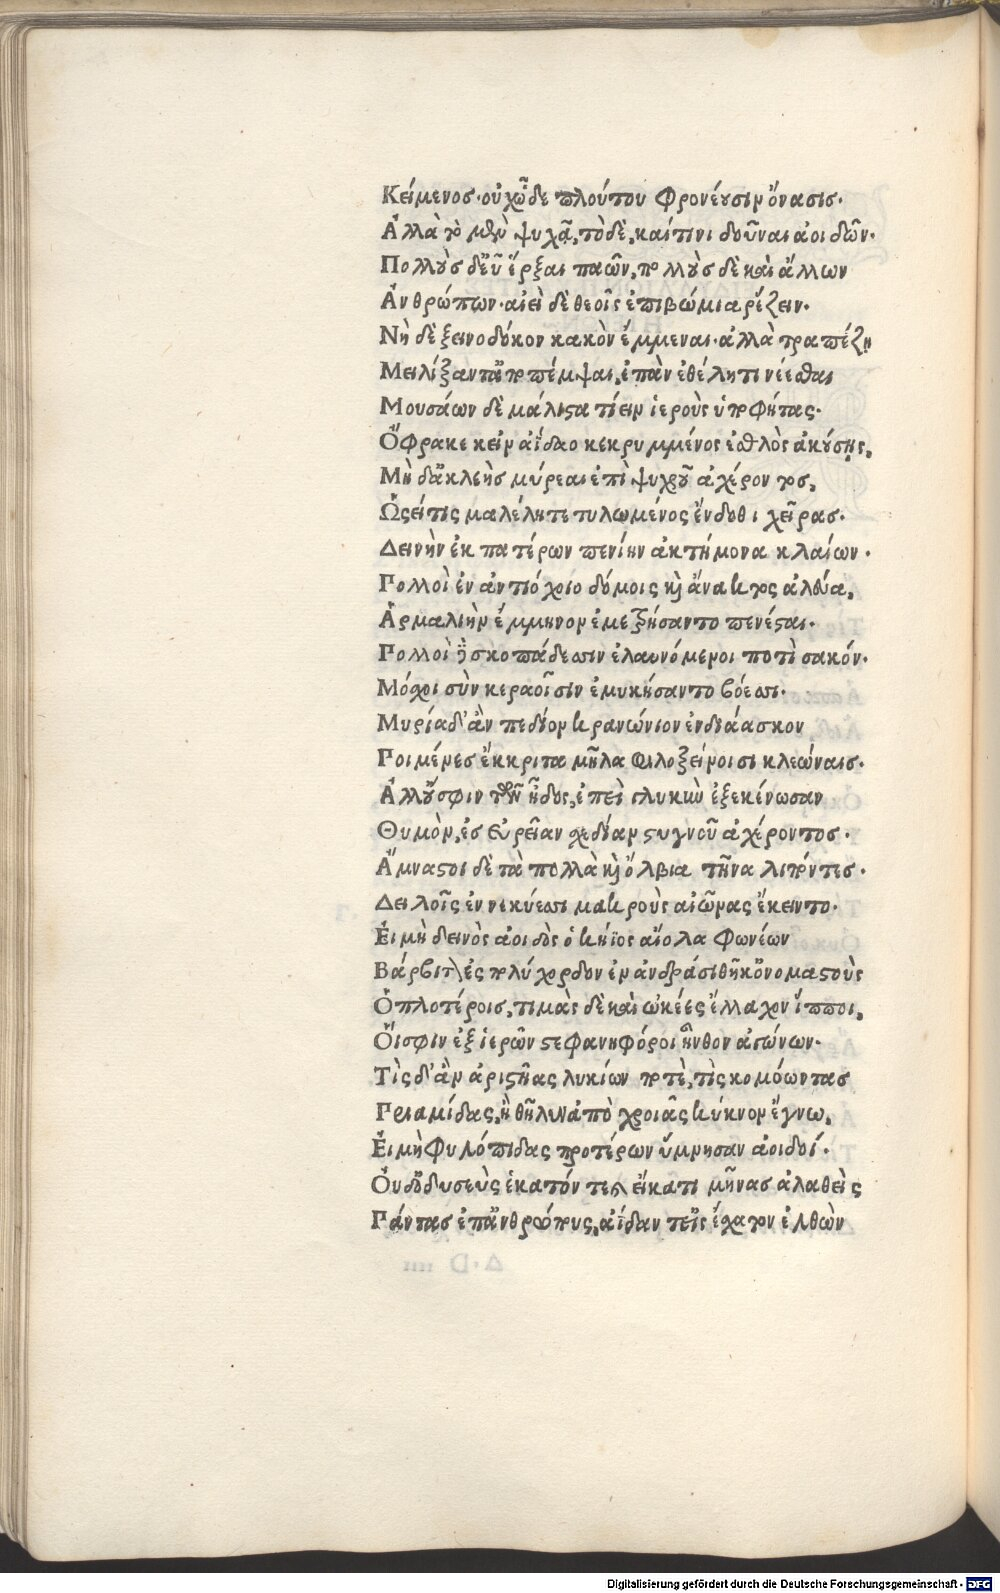 Κείμενοσ·οὐχ ὧδε πλούτου φρονέουσιν ὄνασισ·
Ἀλλὰ τὸ μὲν ψυχᾷ, τὸ δὲ, καί τινι δοῦναι ἀοιδῶν·
Πολλοὺσ δ' εὖ ἕρξαι παῶν, πολλοὺσ δὲ καὶ ἄλλων
Ἀνθρώπων·αἰεὶ δὲ θεοῖς ἐπιβώμια ῥέζειν·
Νὴ δὲ ξεινοδόκον κακὸν ἔμμεναι·ἀλλὰ τραπέζῃ
Μειλίξαντ' ἀποπέμψαι, ἐπὰν ἐθέλητι νέεσθαι
Μουσάων δὲ μάλιστα τίειν ἱεροὺς ὑποφήτας·
Ὄφρα κε κεἰν ἀΐδαο κεκρυμμένος ἐσθλὸς ἀκούσῃς,
Μὴ δ' ἀκλεὴσ μύρεαι ἐπὶ ψυχροῦ ἀχέροντοσ,
Ὡς εἴτις μακέλη τετυλωμένος ἔνδοθι χεῖρας·
Δεινὴν ἐκ πατέρων πενίην ἀκτήμονα κλαίων·
Πολλοὶ ἐν ἀντιόχοιο δόμοις καὶ ἄνακτος ἀλεύα,
Ἁρμαλιὴν ἔμμηνον ἐμετρήσαντο πενέσται·
Πολλοὶ δὲ σκοπάδεσσιν ἐλαυνόμενοι ποτὶ σακόν·
Μόσχοι σὺν κεραοῖσιν ἐμυκήσαντο βόεσσι·
Μυρία δ' ἂν πεδίον κρανώνιον ἐνδιάασκον
Ποιμένεσ ἔκκριτα μῆλα φιλοξείνοισι κλεώναισ·
Ἀλλ' οὔ σφιν τῶν ἦδος, ἐπεὶ γλυκὺν ἐξεκένωσαν
Θυμὸν, ἐσ εὐρεῖαν σχεδίαν στυγνοῦ ἀχέροντοσ·
Ἄμναστοι δὲ τὰ πολλὰ καὶ ὄλβια τῆνα λιπόντεσ·
Δειλοῖς ἐν νεκύεσσι μακροὺς αἰῶνας ἔκειντο·
Εἰ μὴ δεινὸς ἀοιδὸς ὁ κήϊος αἰόλα φωνέων
Βάρβιτον ἐς πολύχορδον ἐν ἀνδράσι θῆκ' ὀνομαστοὺς
Ὁπλοτέροισ, τιμὰς δὲ καὶ ὠκέες ἔλλαχον ἵπποι,
Οἵ σφιν ἐξ ἱερῶν στεφανηφόροι ἦνθον ἀγώνων·
Τὶς δ' ἂν ἀριστῆας λυκίων ποτὲ, τὶς κομόωντασ
Πριαμίδας, ἢ θῆλυν ἀπὸ χροιᾶς κύκνον ἔγνω,
Εἰ μὴ φυλόπιδας προτέρων ὕμνησαν ἀοιδοί·
Οὐδ' ὀδυσεὺς ἑκατόν τε καὶ εἴκατι μῆνασ ἀλαθεὶς
Πάντασ ἐπ' ἀνθρώπους, ἀΐδαν τ' εἰς ἔσχατον ἐλθὼν
Digitalisierung gefördert durch die Deutsche Forschungsgemeinschaft - DFG